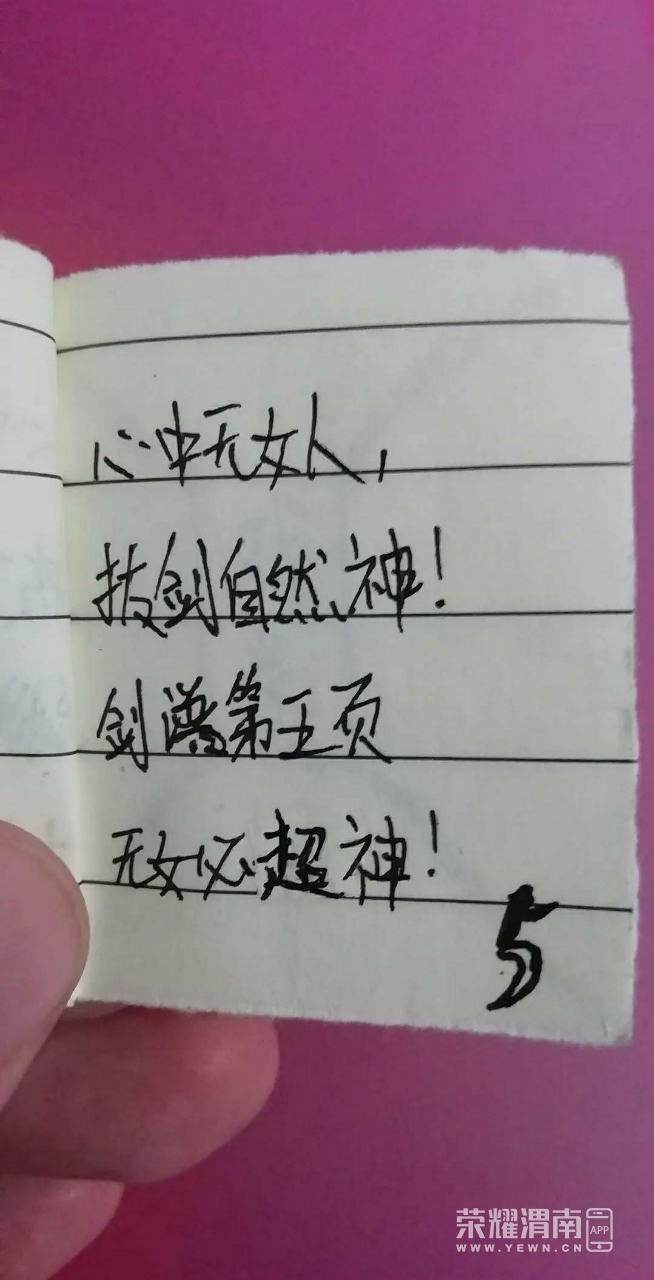 心中无女人，
拔剑自然神！
剑谱第五页
无女必超神！
5
荣耀渭南APP
WWW.YEWN.CN